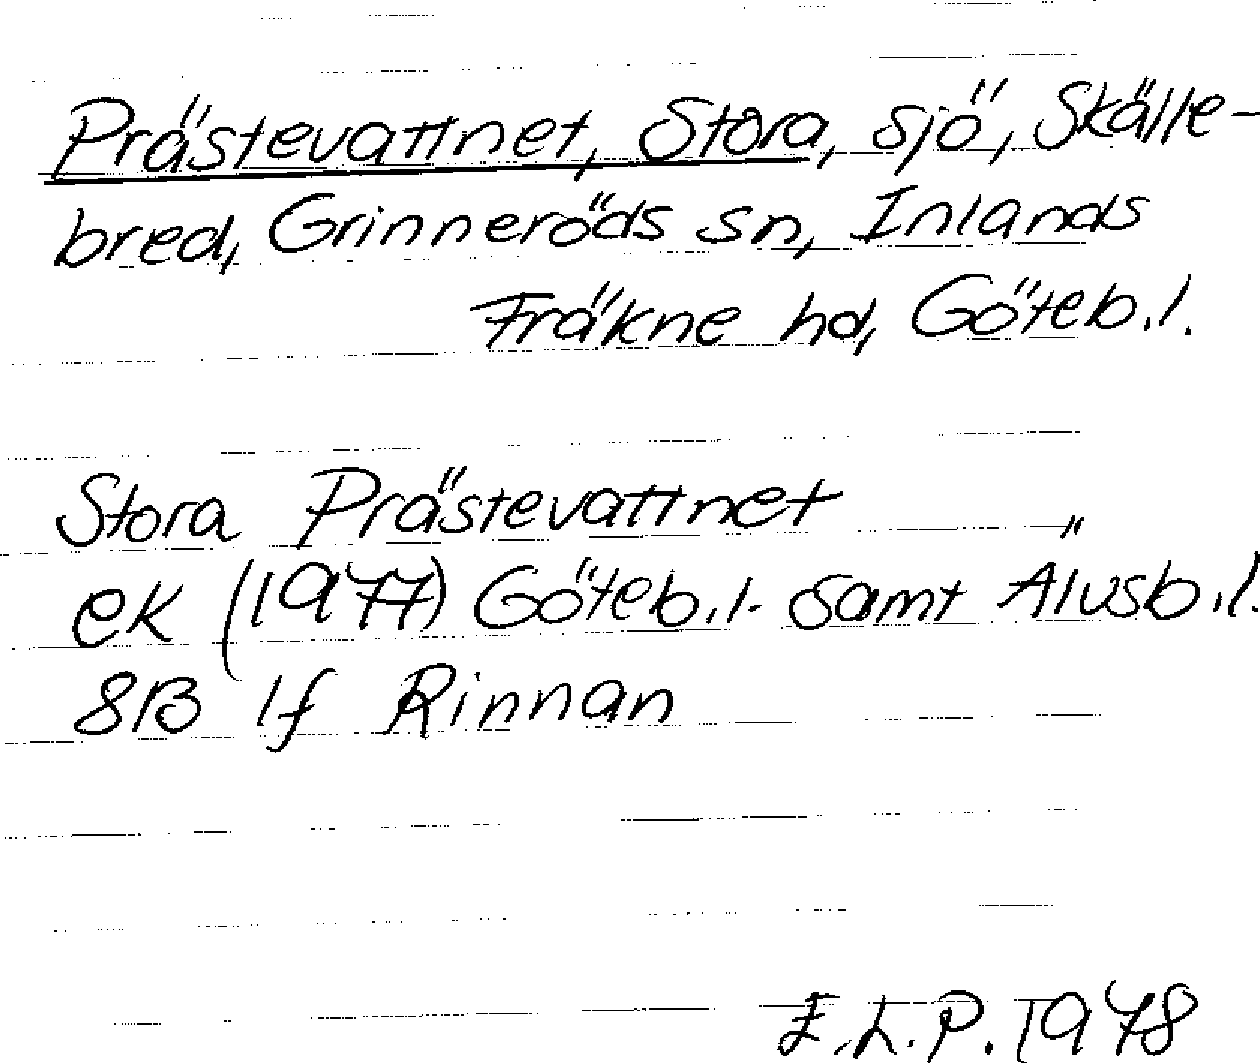 Prästevattnet, Stora, sjö, Skälle-
bred, Grinneröds sn, Inlands
Fräkne hd, Göteb.l.
Stora Prästevattnet
ek (1977) Göteb.l. samt Älvsb.l.
8B 1f Rinnan
E.L.P. 1978